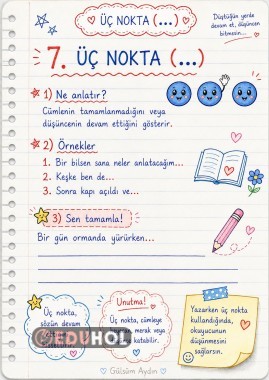 ÜÇ NOKTA (...)
Düştüğün yerde
devam et, düşüncen
bitmesin...
7. ÜÇ NOKTA (...)
1) Ne anlatır?
Cümlenin tamamlanmadığını veya
düşüncenin devam ettiğini gösterir.
2) Örnekler
1. Bir bilsen sana neler anlatacağım...
2. Keşke ben de...
3. Sonra kapı açıldı ve...
3) Sen tamamla!
Bir gün ormanda yürürken...
Üç nokta,
sözün devam
Unutma!
Üç nokta, cümleye
merak veya
katabilir.
Yazarken üç nokta
kullandığında,
okuyucunun
düşünmesini
sağlarsın.
EDUHOL
Gülsüm Aydın